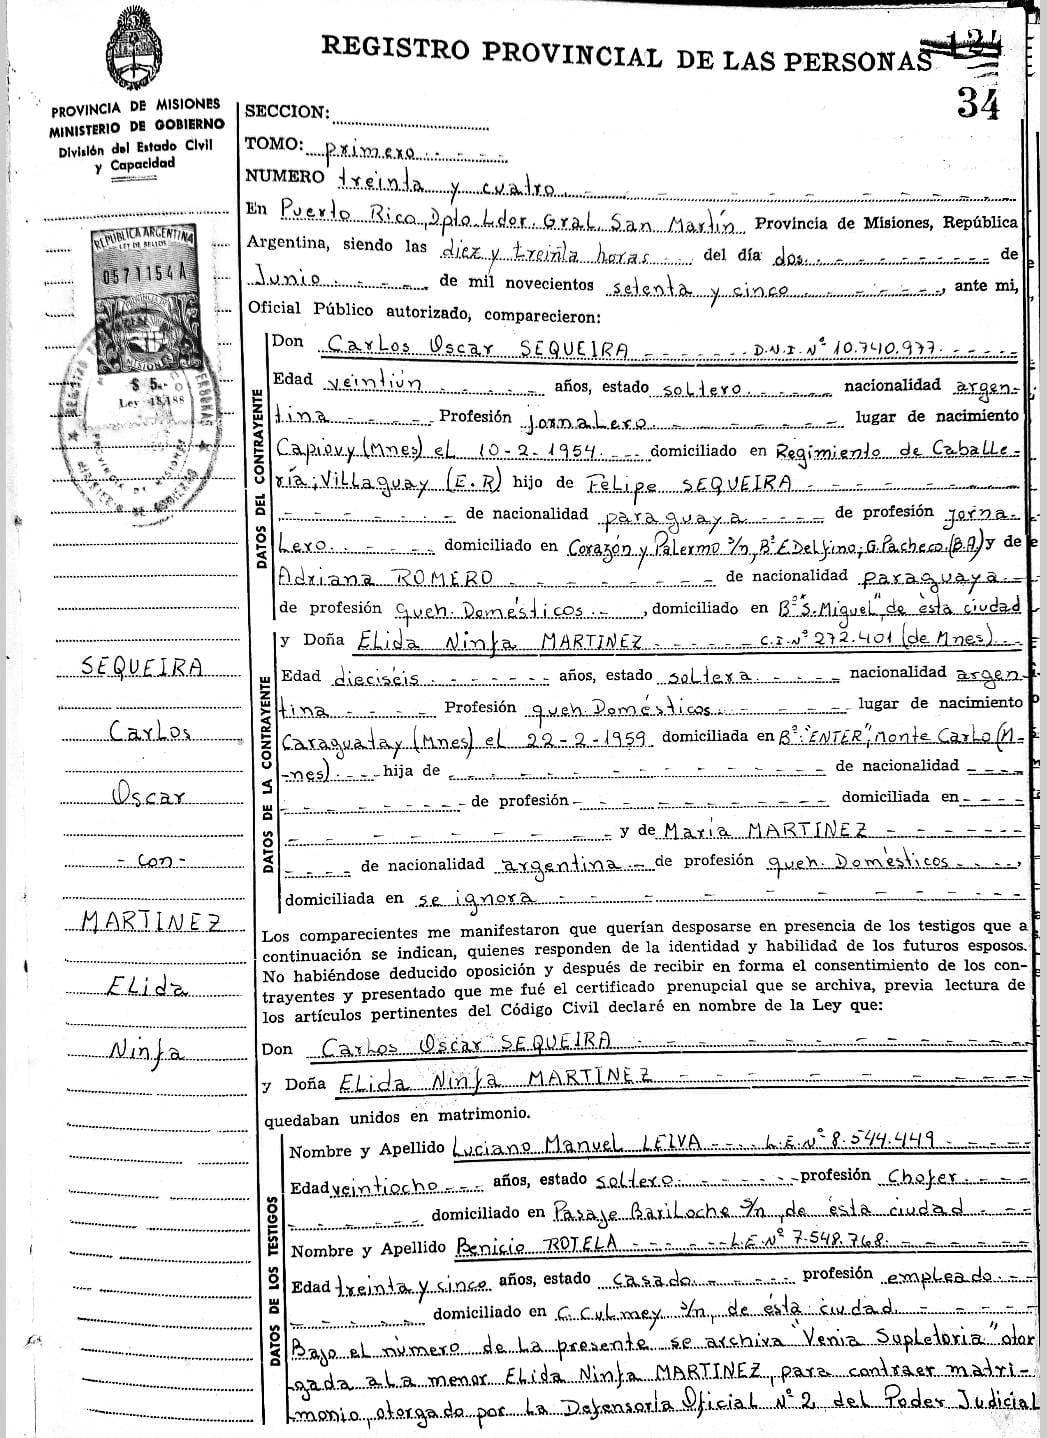 REGISTRO PROVINCIAL DE LAS PERSONAS
34
PROVINCIA DE MISIONES
MINISTERIO DE GOBIERNO
División del Estado Civil
y Capacidad
REPUBLICA ARGENTINA
LEY DE SELLOS
0571154A
$ 5.-
Ley 18.188
SEQUEIRA
Carlos
Oscar
- con -
MARTINEZ
Elida
Ninfa
SECCION:
TOMO: primero
NUMERO treinta y cuatro
En Puerto Rico, Dpto Ldor. Gral. San Martín, Provincia de Misiones, República
Argentina, siendo las diez y treinta horas del día dos de
Junio de mil novecientos setenta y cinco, ante mi,
Oficial Público autorizado, comparecieron:
DATOS DEL CONTRAYENTE
Don Carlos Oscar SEQUEIRA D.N.I. Nº 10.740.977
Edad veintiún años, estado soltero nacionalidad argen-
tina Profesión jornalero lugar de nacimiento
Capiovy (Mnes) el 10-2-1954 domiciliado en Regimiento de Caballe-
ría; Villaguay (E.R) hijo de Felipe SEQUEIRA
de nacionalidad paraguaya de profesión jorna-
lero domiciliado en Corazón y Palermo s/n, Bº E. Delfino, G. Pacheco (B.A) y de
Adriana ROMERO de nacionalidad paraguaya
de profesión queh. Domésticos, domiciliado en Bº "S. Miguel" de ésta ciudad
DATOS DE LA CONTRAYENTE
y Doña Elida Ninfa MARTINEZ C.I. Nº 272.401 (de Mnes)
Edad dieciséis años, estado soltera nacionalidad argen-
tina Profesión queh. Domésticos lugar de nacimiento
Caraguatay (Mnes) el 22-2-1959 domiciliada en Bº "ENTER", Monte Carlo (M-
nes) hija de
de nacionalidad
de profesión domiciliada en
y de María MARTINEZ
de nacionalidad argentina de profesión queh. Domésticos,
domiciliada en se ignora
Los comparecientes me manifestaron que querían desposarse en presencia de los testigos que a
continuación se indican, quienes responden de la identidad y habilidad de los futuros esposos.
No habiéndose deducido oposición y después de recibir en forma el consentimiento de los con-
trayentes y presentado que me fué el certificado prenupcial que se archiva, previa lectura de
los artículos pertinentes del Código Civil declaré en nombre de la Ley que:
Don Carlos Oscar SEQUEIRA
y Doña Elida Ninfa MARTINEZ
quedaban unidos en matrimonio.
DATOS DE LOS TESTIGOS
Nombre y Apellido Luciano Manuel LEIVA L.E. Nº 8.544.449
Edad veintiocho años, estado soltero profesión Chofer
domiciliado en Pasaje Bariloche s/n, de ésta ciudad
Nombre y Apellido Benicio ROTELA L.E. Nº 7.548.768
Edad treinta y cinco años, estado casado profesión empleado
domiciliado en C. Culmey s/n, de ésta ciudad
Bajo el número de la presente se archiva "Venia Supletoria" otor
gada a la menor Elida Ninfa MARTINEZ, para contraer matri-
monio, otorgado por la Defensoría Oficial Nº 2 del Poder Judicial